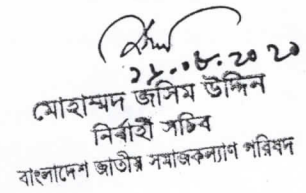 ২৮.০৪.2020
মোহাম্মদ জসিম উদ্দিন
নির্বাহী সচিব
বাংলাদেশ জাতীয় সমাজকল্যাণ পরিষদ